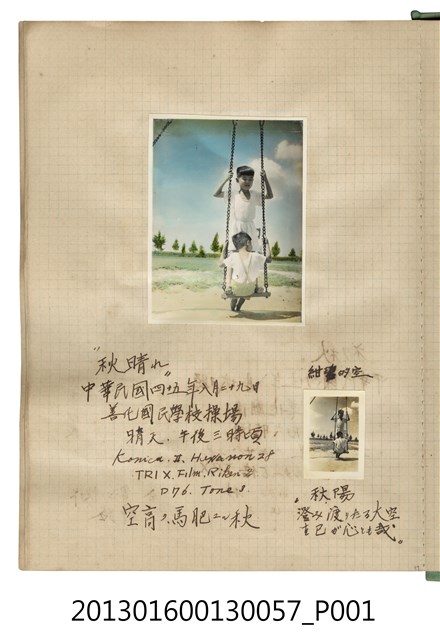 "秋晴れ"
中華民國四十五年八月二十九日
善化國民學校操場
晴天、午後三時頃
Konica. II. Hexanon 28
TRI X. Film.
D76. Tone 3.
空高ク馬肥ユル秋
紺碧の空
秋陽
澄み渡りたる大空
を己が心とも哉。
201301600130057_P001